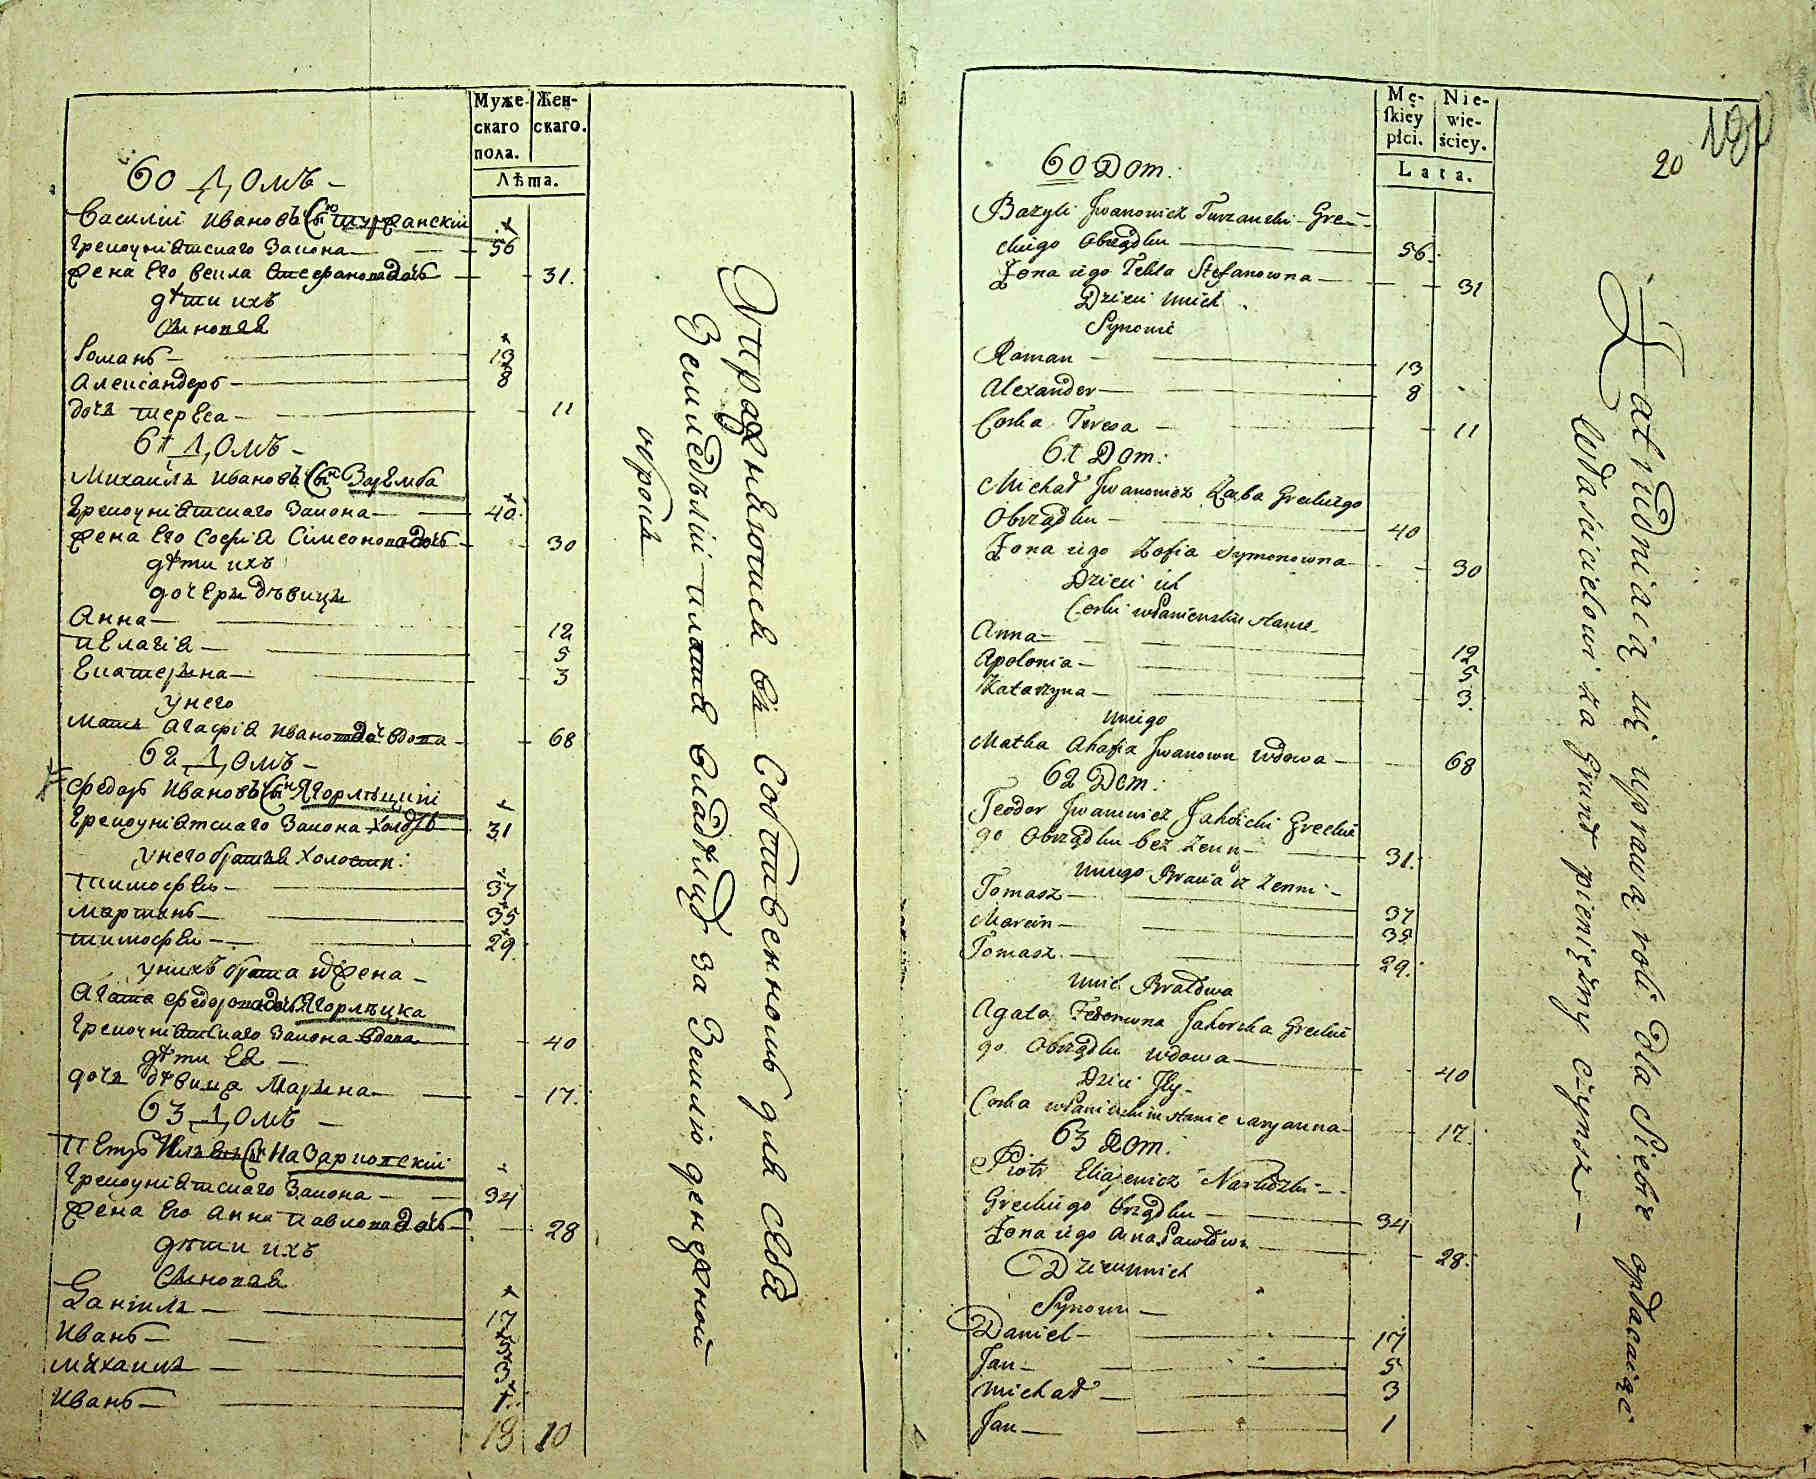 Муже-
скаго
пола.
Жен-
скаго.
Лѣта.
60 Домъ –
Василій Ивановъ Сынъ Шуржанскій
Грекоуніатскаго Закона — 56
Жена Его Векла Стефановадочь — 31.
дѣти ихъ
Сыновья
Романъ — 13
Александеръ — 8
дочь Тереса — 11
61 Домъ –
Михаилъ Ивановъ Сынъ Заремба
Грекоуніатскаго Закона — 40
Жена Его Софія Сімеоновадочь — 30
дѣти ихъ
дочери дѣвицы
Анна — 12
Пелагія — 5
Екатерына — 3
у него
Мать Агафія Ивановадочь вдова — 68
62 Домъ –
Федоръ Ивановъ Сынъ Ягорлѣцкій
Грекоуніатскаго Закона холостъ — 31
у него братья холосты:
Тимофей — 37
Мартинъ — 35
Тимофей — 29
у нихъ брата Жена –
Агата Федоровадочь Ягорлѣцка
Грекоуніатскаго Закона вдова — 40
дѣти Ея –
дочь дѣвица Марына — 17.
63 Домъ –
Петръ Ильинъ Сынъ
Грекоуніатскаго Закона — 34
Жена Его Анна Павловадочь — 28
дѣти ихъ
Сыновья
Даніилъ — 17
Иванъ — 5
Михаилъ — 3
Иванъ — 1
18 10
Упражняются въ Собственномъ для себя
Земледѣліи платя владѣлцу за Землю денежной
оброкъ
Mę-
ſkiey
płci.
Nie-
wie-
ściey.
Lata.
20
60 Dom:
Bazyli Jwanowicz Turzanski Gre-
ckiego Obrządku — 56.
Żona iego Tekla Stefanowna — 31
Dzieci unich
Synowie
Roman — 13
Alexander — 8
Corka Teresa — 11
61 Dom:
Michał Jwanowicz Zaba Greckiego
Obrządku — 40
Żona iego Zofia Symonowna — 30
Dzieci ich
Corki wPanienskim stanie
Anna — 12
Apolonia — 5
Katarzyna — 3.
uniego
Matka Ahafia Jwanowna wdowa — 68
62 Dom:
Teodor Jwanowicz Jahorlicki Greckie
go Obrządku bez Żenny — 31.
uniego Bracia bez Zenni –
Tomasz — 37
Marcin — 35
Tomasz — 29.
unich Bratowa
Agata Fedorowna Jahorska Greckie
go Obrządku wdowa — 40
Dzieci Jey –
Corka wPanienskim stanie Maryanna — 17.
63 Dom:
Piotr Eliaszewicz
Greckiego Obrządku — 34
Żona iego Anna Pawłowna — 28.
Dzieci unich
Synowie —
Daniel — 17
Jan — 5
Michał — 3
Jan — 1
Zatrudniaią się uprawą roli dla Siebie opłacaiąc
Włascicielowi za Grunt pieniężny czynsz –